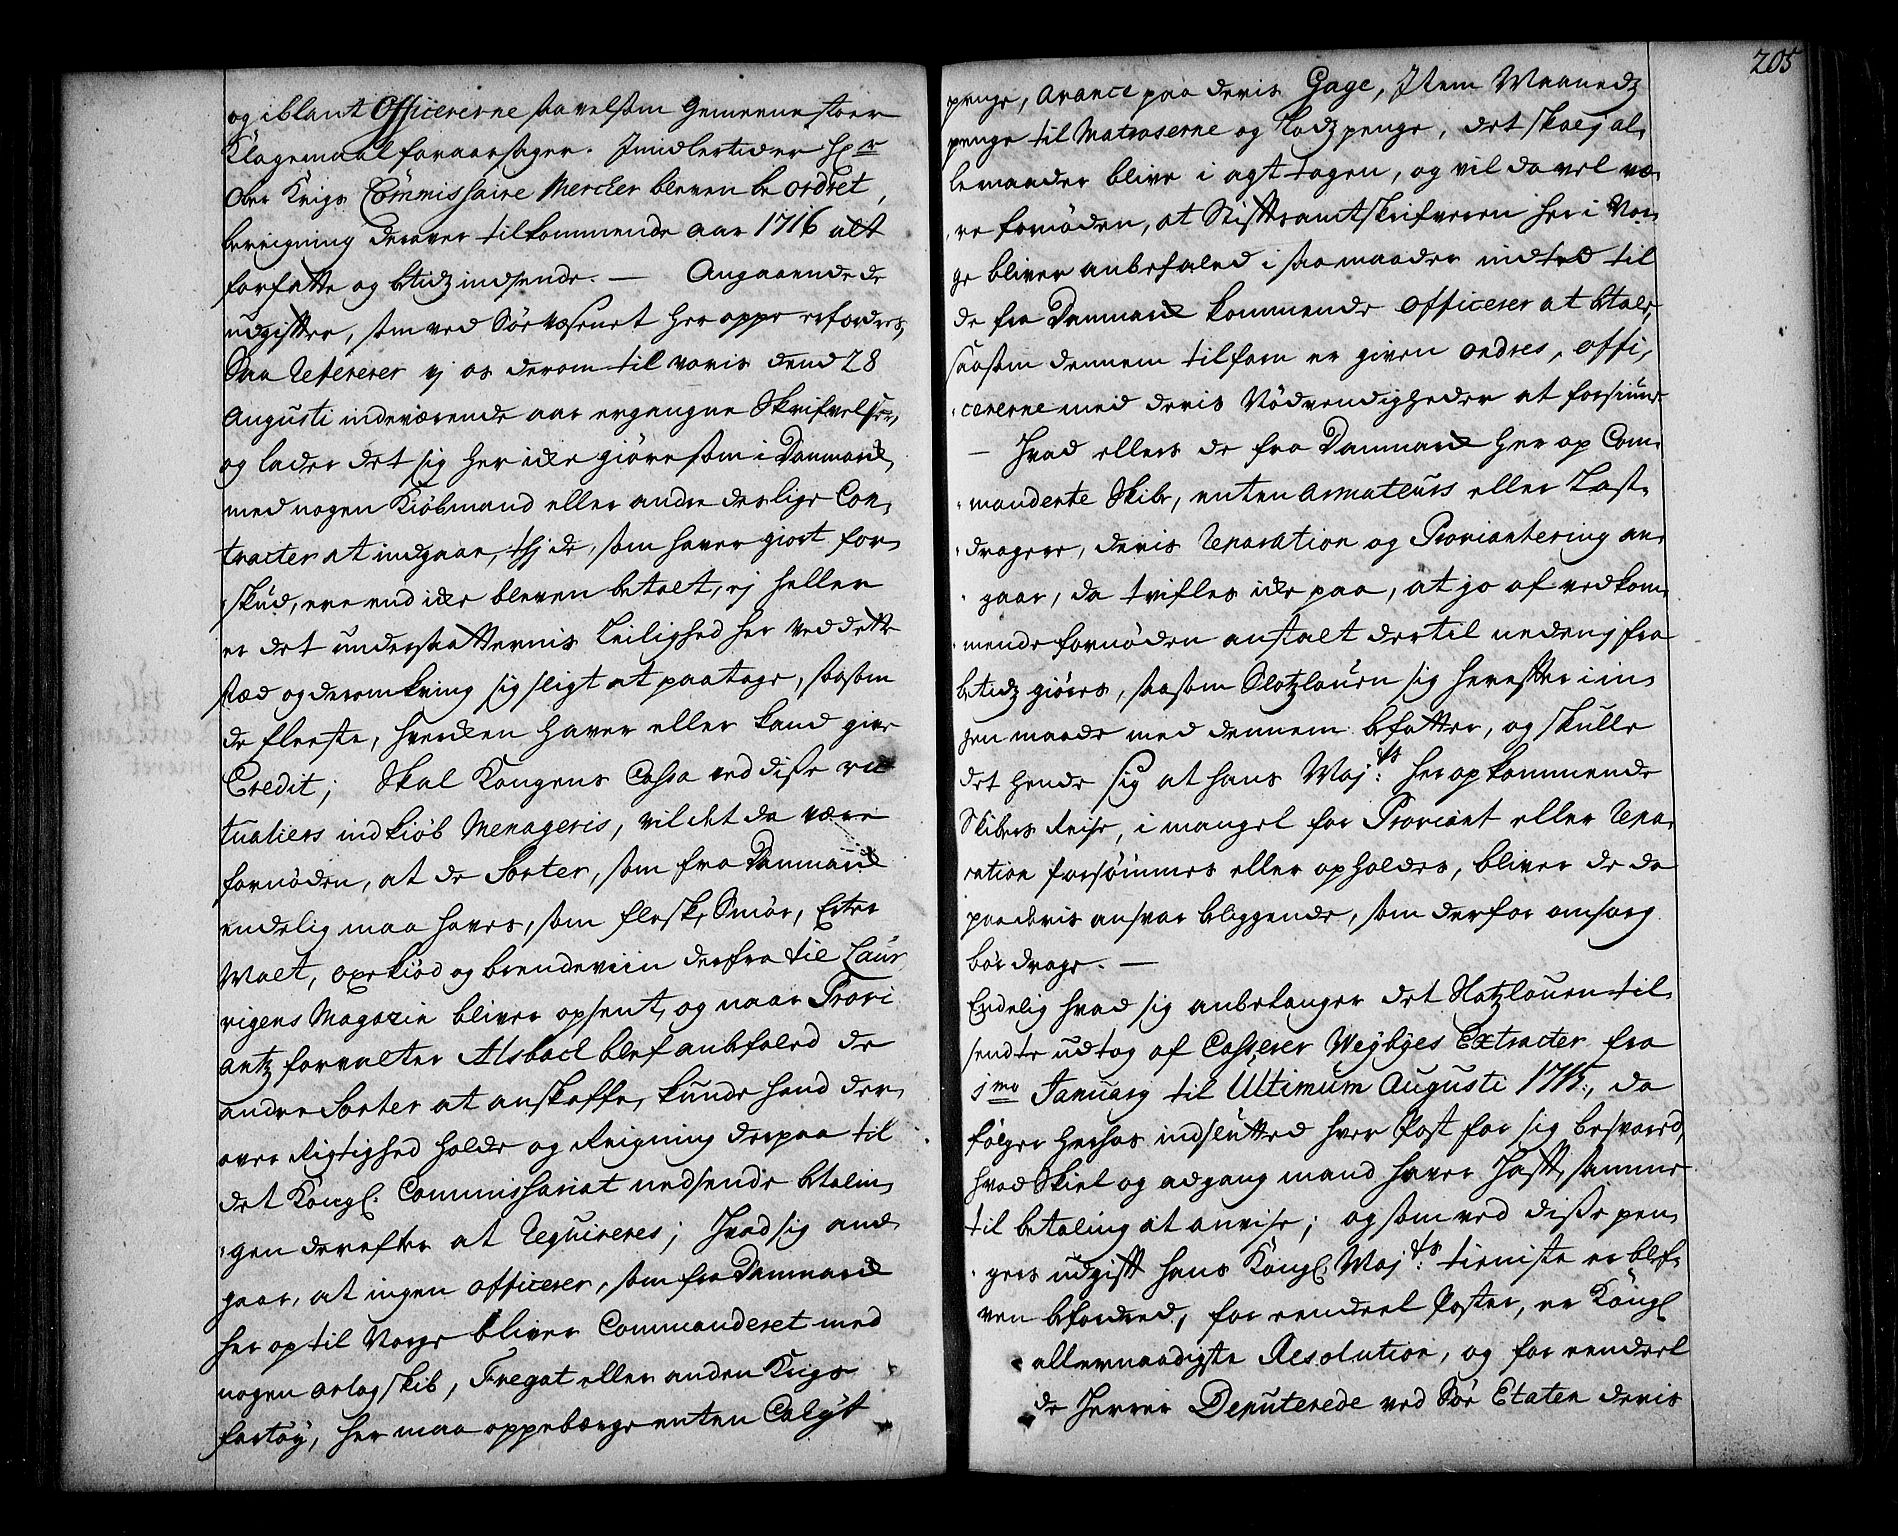 og iblant Officererne saavelsom Gemeene stoer
Klagemaal foraarsager. Imidlertid er Hr
Ober Krigs Commissaire Mercker bleven beordret,
bereigning derover tilkommende aar 1716 alt
forfatte og betidz indsende. — Angaaende de
udgifter, som ved Söevæsenet her oppe erfordres,
Saa Refererer vj os derom til voris dend 28
Augusti indeværende aar ergangne Skrifvelser,
og lader det sig her icke giöre som i Danmarck,
med nogen Kiöbmand eller andre deslige Con-
tracter at indgaae, thj de, som haver giort for-
skud, ere end icke bleven betalt, ej heller
er det undersaatternis Leilighed her ved dette
stæd og deromkring sig sligt at paatage, saasom
de fleeste, hvercken haver eller kand give
Credit; Skal Kongens Cassa ved disse vic
tualiers indkiöb Menageris, vil det da være
fornöden, at de Sorter, som fra Danmarck
endelig maa haves, som flesk, Smör, Erter
Malt, oxekiöd og brendeviin derfra til Laur
vigens Magazin bliver opsent, og naar Provi
antz forvalter Alsbach blef anbefaled de
andre Sorter at anskaffe, kunde hand der-
over Rigtighed holde og Reigning derpaa til
det Kongl. Commissariat nedsende betalin-
gen derefter at Requireres; Hvad sig and-
gaar, at ingen officerer, som fra Danmarck
her op til Norge bliver Commanderet med
nogen orlogskib, Fregat eller anden Krigs
fartöy, her maa oppebærge enten Cahyt
205
penge, avance paa deris Gage, Item Maanedz
penge til Matroserne og Lodzpenge, det skal j al-
le maader blive i agt tagen, og vil da vel væ-
re fornöden, at Stiftamtskrifveren her i Nor-
ge bliver anbefaled i saa maader intet til
de fra Danmarck kommende officerer at betale,
saasom dennem tilforn er given ordres, offi-
cererne med deris Nödvendigheder at forsiune
— Hvad ellers de fra Danmarck her op Com-
manderte Skibe, enten Armateurs eller Last-
dragere, deris Reparation og Proviantering an-
gaar, da tvifles icke paa, at jo af vedkom-
mende fornöden anstalt dertil neden fra
betidz giöres, saasom Slotzlouen sig herefter i in-
gen maade med dennem befatter, og skulle
det hende sig at hans Maj:ts her op kommende
Skibers Reise, i mangel for Proviant eller Repa-
ration forsömmes eller opholdes, bliver de da
paa deris ansvar beliggende, som derfor omsorg
bör drage. —
Endelig hvad sig anbelanger det Slotzlouen til-
sendte udtog af Casserer Weybyes Extracter fra
1mo January til Ultimum Augusti 1715, da
fölger herhos indslutted hver Post for sig besvared,
hvad Skiel og adgang mand haver hafft, samme
til betaling at anvise; og som ved disse pen-
ges udgifft hans Kongl. Maj:ts tieniste er blef-
ven befordred, for eendeel Poster, er Kongl
allernaadigste Resolution, og for eendeel
de Herrer Deputerede ved Söe Etaten deris